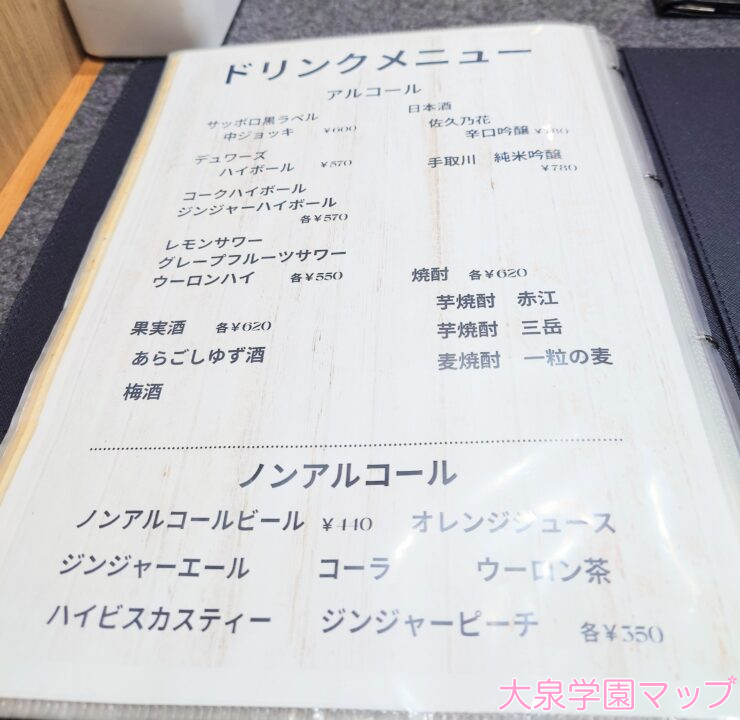 ドリンクメニュー
アルコール
サッポロ黒ラベル
中ジョッキ ¥600
デュワーズ
ハイボール ¥570
コークハイボール
ジンジャーハイボール
各¥570
レモンサワー
グレープフルーツサワー
ウーロンハイ 各¥550
果実酒 各¥620
あらごしゆず酒
梅酒
日本酒
佐久乃花
辛口吟醸 ¥780
手取川 純米吟醸
¥780
焼酎 各¥620
芋焼酎 赤江
芋焼酎 三岳
麦焼酎 一粒の麦
ノンアルコール
ノンアルコールビール ¥440 オレンジジュース
ジンジャーエール コーラ ウーロン茶
ハイビスカスティー ジンジャーピーチ 各¥350
大泉学園マップ